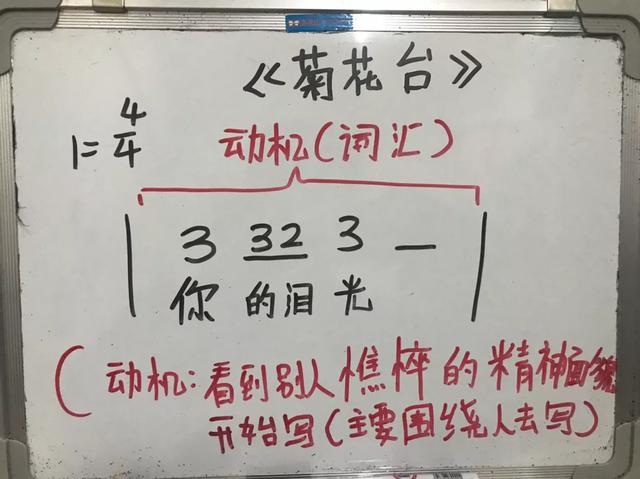 《菊花台》
1= 4/4
动机(词汇)
| 3 32 3 — |
你 的泪 光
(动机:看到别人憔悴的精神面貌
开始写(主要围绕人去写)